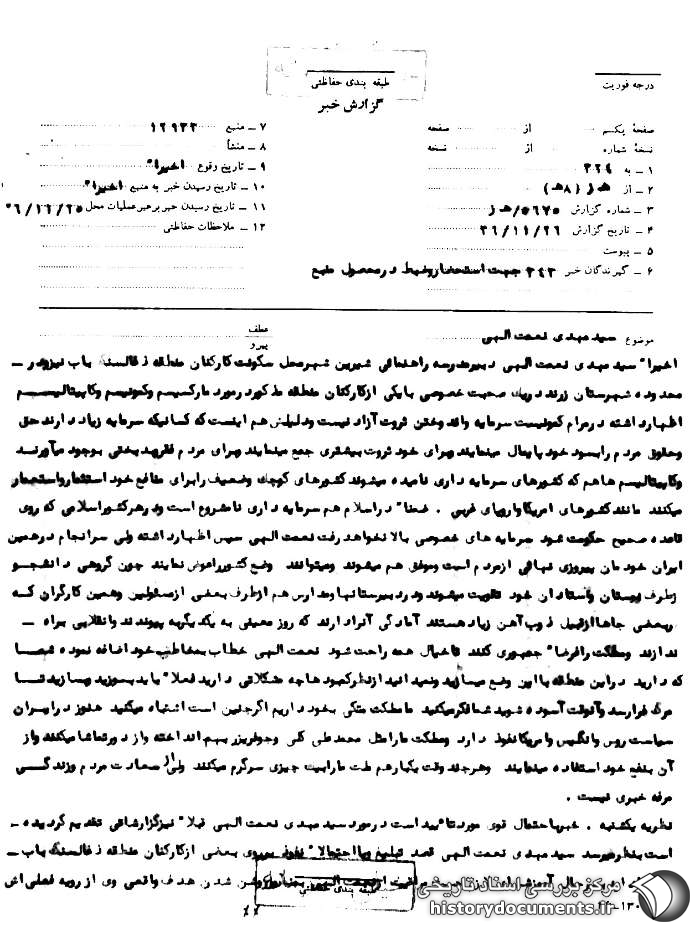 درجه فوریت
طبقه بندی حفاظتی
گزارش خبر
صفحهٔ یکم از صفحه
نسخهٔ شماره از نسخه
۱ – به ۳۴۱
۲ – از ه‍ ز (۸ه‍)
۳ – شماره گزارش ۵۶۷۵/ه‍ ز
۴ – تاریخ گزارش ۳۶/۱۱/۲۶
۵ – پیوست
۶ – گیرندگان خبر ۳۴۳ جهت استحضار وضبط درمحصول منبع
۷ – منبع ۱۲۹۳۳
۸ – منشأ
۹ – تاریخ وقوع اخیرا"
۱۰ – تاریخ رسیدن خبر به منبع اخیرا"
۱۱ – تاریخ رسیدن خبر برهبر عملیات محل
۱۲ – ملاحظات حفاظتی
موضوع سید مهدی نعمت الهی
عطف
پیرو
اخیرا" سید مهدی نعمت الهی دبیرمدرسه راهنمائی شیرین شهرمحل سکونت کارکنان منطقه ذغالسنگ باب نیزودر –
محدوده شهرستان زرند دریک صحبت خصوصی بایکی ازکارکنان منطقه مذکوردرمورد مارکسیسم وکمونیسم وکاپیتالیسم
اظهارداشته درمرام کمونیست سرمایه واند وختن ثروت آزاد نیست ودلیلش هم اینست که کسانیکه سرمایه زیاد دارند حق
وحقوق مردم رابسود خود پایمال مینمایند وبرای خود ثروت بیشتری جمع مینمایند وبرای مردم فقروبدبختی بوجود میآورند
وکاپیتالیسم هاهم که کشورهای سرمایه داری نامیده میشوند کشورهای کوچک وضعیف رابرای منافع خود استثمارواستعمار
میکنند مانند کشورهای امریکا واروپای غربی . ضمنا" دراسلام هم سرمایه داری نامشروع است ودرهرکشوراسلامی که روی
قاعده صحیح حکومت شود سرمایه های خصوصی بالا نخواهد رفت نعمت الهی سپس اظهارداشته ولی سرانجام درهمین
ایران خودمان پیروزی نهائی ازمردم است وموفق هم میشوند ومیتوانند وضع کشورراعوض نمایند چون گروهی دانشجو
ازطرف دبیرستان واستادان خود تقویت میشوند ودردبیرستانها ومدارس هم ازطرف بعضی ازمسئولین وهمین کارگران کـه
دربعضی جاهاازقبیل ذوب آهن زیاد هستند آمادگی آنرادارند که روز معینی به یکدیگر به پیوندند وانقلابی براه –
اندازند ومملکت رافرضا" جمهوری کنند تاخیال همه راحت شود نعمت الهی خطاب بمخاطب خود اضافه نموده شمـا
که دارید دراین منطقه بااین وضع میسازید ونمیدانید ازنظرکمبودهاچه مشکلاتی دارید فعلا" باید بسوزید وبسازید تـا
مرگ فرارسد وآنوقت آسوده شوید شمافکرمیکنید مامملکت متکی بخود داریم اگرچنین است اشتباه میکنید هنوز درایـران
سیاست روس وانگلیس وامریکانفوذ دارد ومملکت مارامثل محمدعلی کلی وجوفریزر بهم انداخته واز دورتماشا میکنند واز
آن بنفع خود استفاده مینمایند وهرچند وقت یکبارهم ملت مارابیک چیزی سرگرم میکنند ولی از سعادت مردم وزندگـی
مرفه خبری نیست .
نظریه یکشنبه . خبربااحتمال قوی موردتائیید است درمورد سید مهدی نعمت الهی قبلا" نیزگزارشاتی تقدیم گردیده –
است بنظرمیرسد سید مهدی نعمت الهی قصد تبلیغ ویااحتمالا" نفوذ برروی بعضی ازکارکنان منطقه ذغالسنگ باب –
شدن هدف واقعی وی از رویه فعلی اش
طبقه بندی حفاظتی
مرکز بررسی اسناد تاریخی
historydocuments.ir